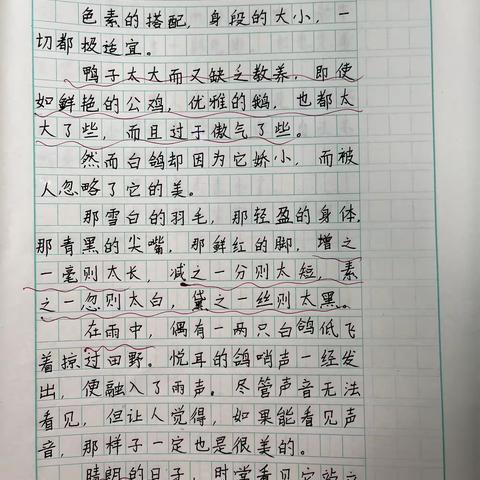 色素的搭配，身段的大小，一
切都极适宜。
鸭子太大而又缺乏教养，即使
如鲜艳的公鸡，优雅的鹅，也都太
大了些，而且过于傲气了些。
然而白鸽却因为它娇小，而被
人忽略了它的美。
那雪白的羽毛，那轻盈的身体，
那青黑的尖嘴，那鲜红的脚，增之
一毫则太长，减之一分则太短，素
之一忽则太白，黛之一丝则太黑。
在雨中，偶有一两只白鸽低飞
着掠过田野。悦耳的鸽哨声一经发
出，便融入了雨声。尽管声音无法
看见，但让人觉得，如果能看见声
音，那样子一定也是很美的。
晴朗的日子，时常看见它站立